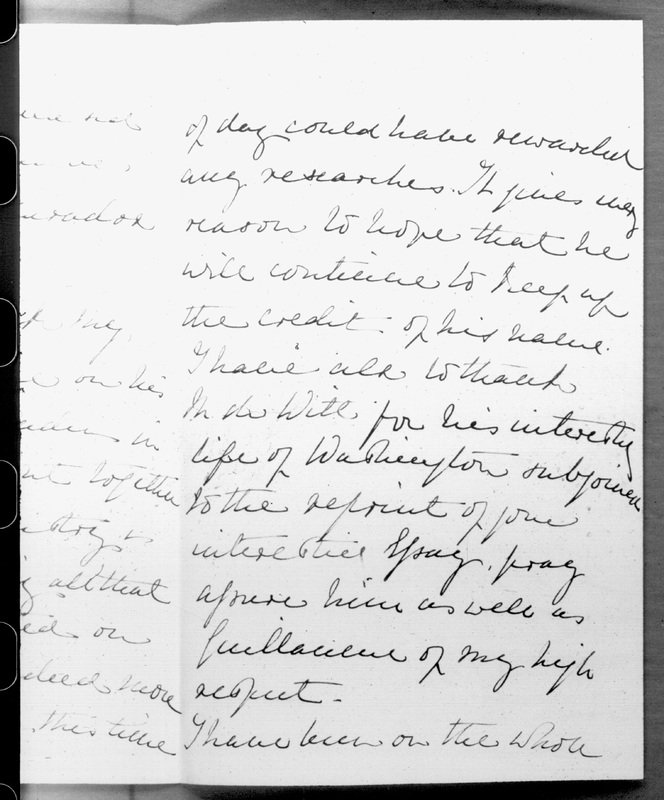 me on his
in
together
all that
on
indeed more
this time
of day could have rewarded
any researches. It gives every
reason to hope that he
will continue to keep up
the credit of his name.
I have also to thank
M de Witt for his interesting
life of Washington subjoined
to the reprint of your
interesting Essay, pray
assure him as well as
Guillaume of my high
respect -
I have been on the whole